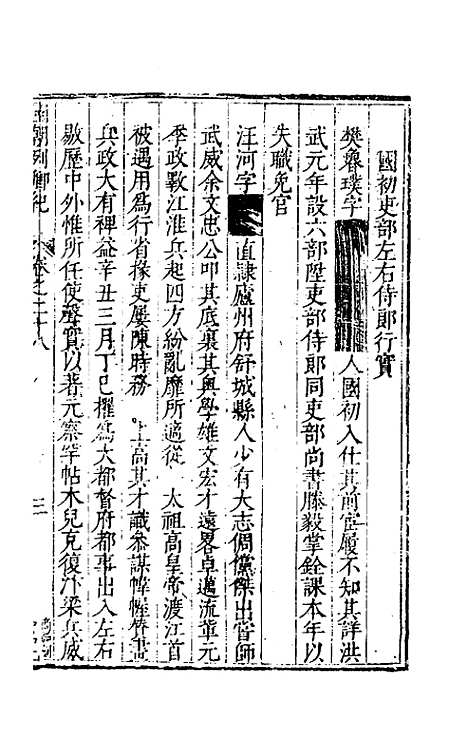 國初吏部左右侍郎行實
樊魯璞字 人國初入仕其前宦履不知其詳洪
武元年設六部陞吏部侍郎同吏部尚書滕毅掌銓課本年以
失職免官
汪河字 直隷廬州府舒城縣人少有大志倜儻傑出嘗師
武威余文忠公叩其底裏其與學雄文宏才遠畧卓邁流輩元
季政斁江淮兵起四方紛亂靡所適從 太祖高皇帝渡江首
被遇用爲行省掾史屢陳時務 上高其才識叅謀幃幄
兵政大有裨益辛丑三月丁巳擢爲大都督府都事出入左右
敭歷中外惟所任使聲實以著元察罕帖木兒克復汴梁兵威
朝列卿紀 卷之二十八 三